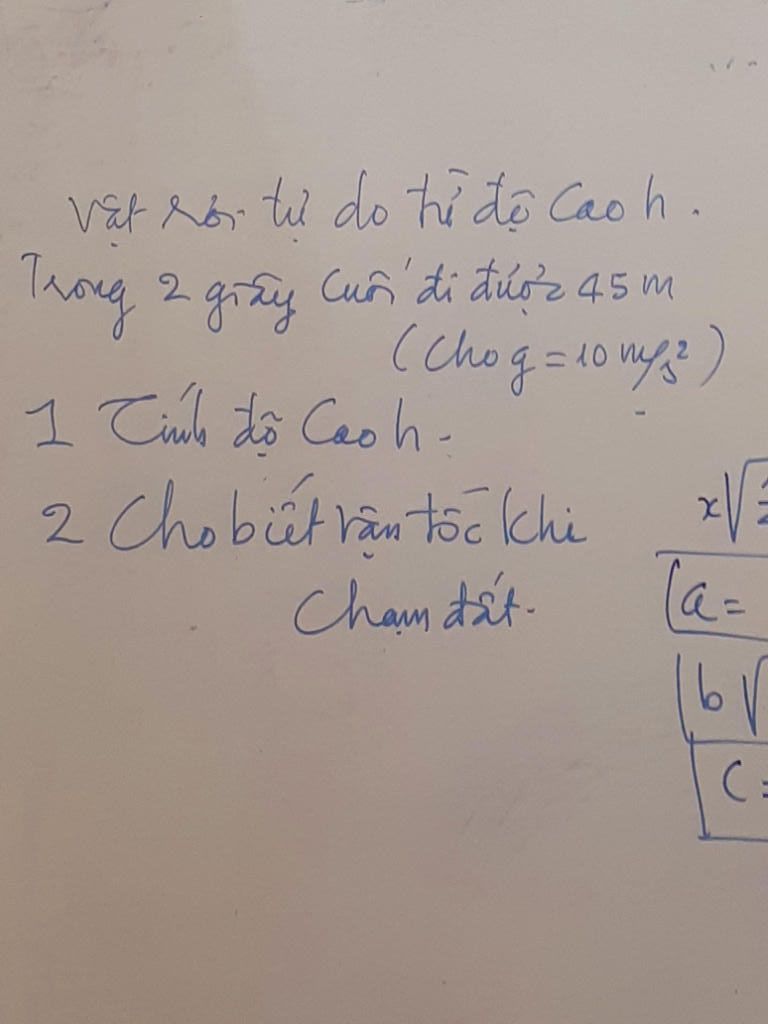 Vật rơi tự do từ độ cao h.
Trong 2 giây cuối đi được 45 m
(Cho g = 10 m/s²)
1 Tính độ cao h.
2 Cho biết vận tốc khi
chạm đất.
x√
a =
b√
c =